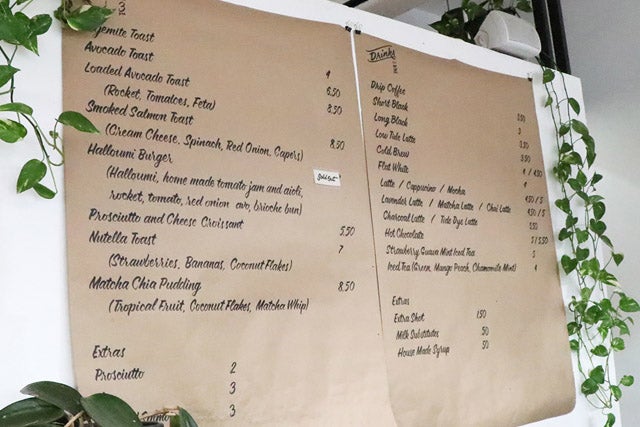 Toast
Avocado Toast
Loaded Avocado Toast 4
(Rocket, Tomatoes, Feta) 6.50
Smoked Salmon Toast 8.50
(Cream Cheese, Spinach, Red Onion, Capers)
Halloumi Burger 8.50
(Halloumi, home made tomato jam and aioli, Sold Out
rocket, tomato, red onion avo, brioche bun)
Prosciutto and Cheese Croissant
Nutella Toast 5.50
(Strawberries, Bananas, Coconut Flakes) 7
Matcha Chia Pudding
(Tropical Fruit, Coconut Flakes, Matcha Whip) 8.50
Extras
Prosciutto 2
3
3
Drinks
Drip Coffee
Short Black
Long Black 3.50
Low Tide Latte 3
Cold Brew 3.50
Flat White 3.50
Latte / Cappuccino / Mocha 4 / 4.50
Lavender Latte / Matcha Latte / Chai Latte 4
Charcoal Latte / Tide Dye Latte 4.50 / 5
Hot Chocolate 4.50 / 5
Strawberry Guava Mint Iced Tea
Iced Tea (Green, Mango Peach, Chamomile Mint) 5 / 5.50
5
4
Extras
Extra Shot 1.50
Milk Substitutes .50
House Made Syrup .50